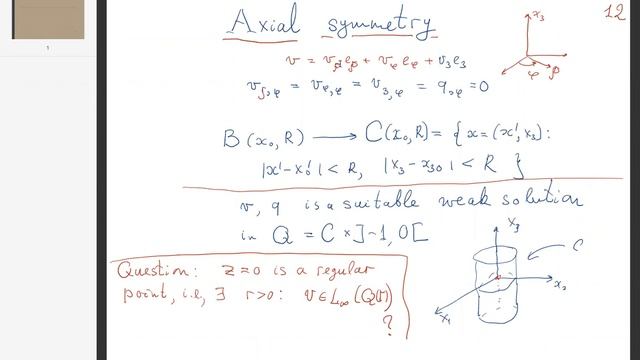 12
Axial symmetry
v = v_ρ e_ρ + v_φ e_φ + v_3 e_3
v_ρ,φ = v_φ,φ = v_3,φ = q,φ = 0
x_3
φ
ρ
B(x_0, R) ⟶ C(x_0, R) = { x = (x', x_3) :
|x' - x_0'| < R, |x_3 - x_30| < R }
v, q is a suitable weak solution
in Q = C × ]-1, 0[
Question: z = 0 is a regular
point, i.e., ∃ r > 0 : v ∈ L_∞(Q(r))
?
x_3
C
x_2
x_1
1